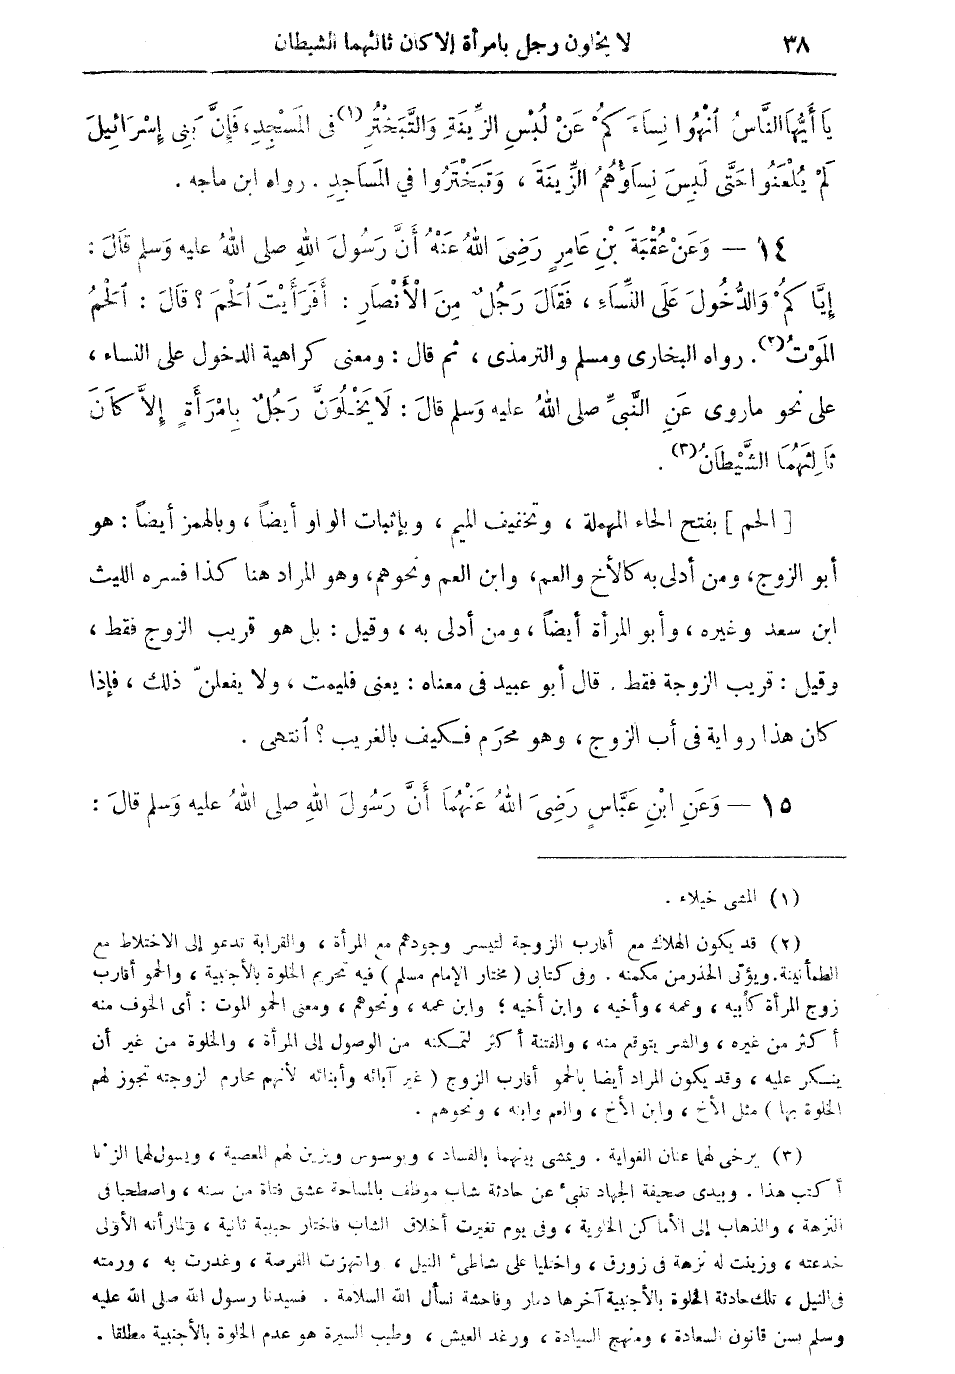 ٣٨ لا يخلون رجل بامرأة إلا كان ثالثهما الشيطان
يَا أَيُّهَا النَّاسُ ٱنْهُوا نِسَاءَكُمْ عَنْ لُبْسِ الزِّينَةِ وَالتَّبَخْتُرِ(١) فى الْمَسْجِدِ، فَإِنَّ بَنِى إِسْرَائِيلَ
لَمْ يُلْعَنُوا حَتَّى لَبِسَ نِسَاؤُهُمُ الزِّينَةَ ، وَتَبَخْتَرُوا فِي الْمَسَاجِدِ . رواه ابن ماجه .
١٤ — وَعَنْ عُقْبَةَ بْنِ عَامِرٍ رَضِىَ اللهُ عَنْهُ أَنَّ رَسُولَ اللهِ صلى اللهُ عليه وَسلم قَالَ :
إِيَّا كُمْ وَالدُّخُولَ عَلَى النِّسَاءِ ، فَقَالَ رَجُلٌ مِنَ الْأَنْصَارِ : أَفَرَأَيْتَ الْحَمَ ؟ قَالَ : ٱلْحَمُ
الْمَوْتُ(٢). رواه البخارى ومسلم والترمذى ، ثم قال : ومعنى كراهية الدخول على النساء ،
على نحو ماروى عَنِ النَّبِىِّ صلى اللهُ عليه وَسلم قَالَ : لَا يَخْلُوَنَّ رَجُلٌ بِامْرَأَةٍ إِلاَّ كَانَ
ثَالِثَهُمَا الشَّيْطَانُ(٣) .
[ الحم ] بفتح الحاء المهملة ، وتخفيف الميم ، وبإثبات الواو أيضاً ، وبالهمز أيضاً : هو
أبو الزوج، ومن أدلى به كالأخ والعم، وابن العم ونحوهم، وهو المراد هنا كذا فسره الليث
ابن سعد وغيره ، وأبو المرأة أيضاً ، ومن أدلى به ، وقيل : بل هو قريب الزوج فقط ،
وقيل : قريب الزوجة فقط . قال أبو عبيد فى معناه : يعنى فليمت ، ولا يفعلنّ ذلك ، فإذا
كان هذا رواية فى أب الزوج ، وهو محرَم فكيف بالغريب ؟ ٱنتهى .
١٥ — وَعَنِ ابْنِ عَبَّاسٍ رَضِىَ اللهُ عَنْهُمَا أَنَّ رَسُولَ اللهِ صلى اللهُ عليه وَسلم قَالَ :
(١) المشى خيلاء .
(٢) قد يكون الهلاك مع أقارب الزوجة لتيسر وجودهم مع المرأة ، والقرابة تدعو إلى الاختلاط مع
الطمأنينة. ويؤتى الحذر من مكمنه . وفى كتابى ( مختار الإمام مسلم ) فيه تحريم الخلوة بالأجنبية ، والحمو أقارب
زوج المرأة كأبيه ، وعمه ، وأخيه ، وابن أخيه ؛ وابن عمه ، ونحوهم ، ومعنى الحمو الموت : أى الخوف منه
أكثر من غيره ، والشر يتوقع منه ، والفتنة أكثر لتمكنه من الوصول إلى المرأة ، والخلوة من غير أن
ينكر عليه ، وقد يكون المراد أيضا بالحمو أقارب الزوج ( غير آبائه وأبنائه لأنهم محارم لزوجته تجوز لهم
الخلوة بها ) مثل الأخ ، وابن الأخ ، والعم وابنه ، ونحوهم .
(٣) يرخى لهما عنان الغواية . ويمشى بينهما بالفساد ، ويوسوس ويزين لهم المعصية ، ويسول لهما الزنا
أكتب هذا . وبيدى صحيفة الجهاد تنبئ عن حادثة شاب موظف بالمساحة عشق فتاة من سنه ، واصطحبا فى
النزهة ، والذهاب إلى الأماكن الخاوية ، وفى يوم تغيرت أخلاق الشاب فاختار حبيبة ثانية ، والمرأته الأولى
خدعته ، وزينت له نزهة فى زورق ، واختليا على شاطئ النيل ، وانتهزت الفرصة ، وغدرت به ، ورمته
فى النيل ، تلك حادثة الخلوة بالأجنبية آخرها دمار وفاحشة نسأل الله السلامة . فسيدنا رسول الله صلى الله عليه
وسلم يسن قانون السعادة ، ومنهج السيادة ، ورغد العيش ، وطيب السيرة هو عدم الخلوة بالأجنبية مطلقا .